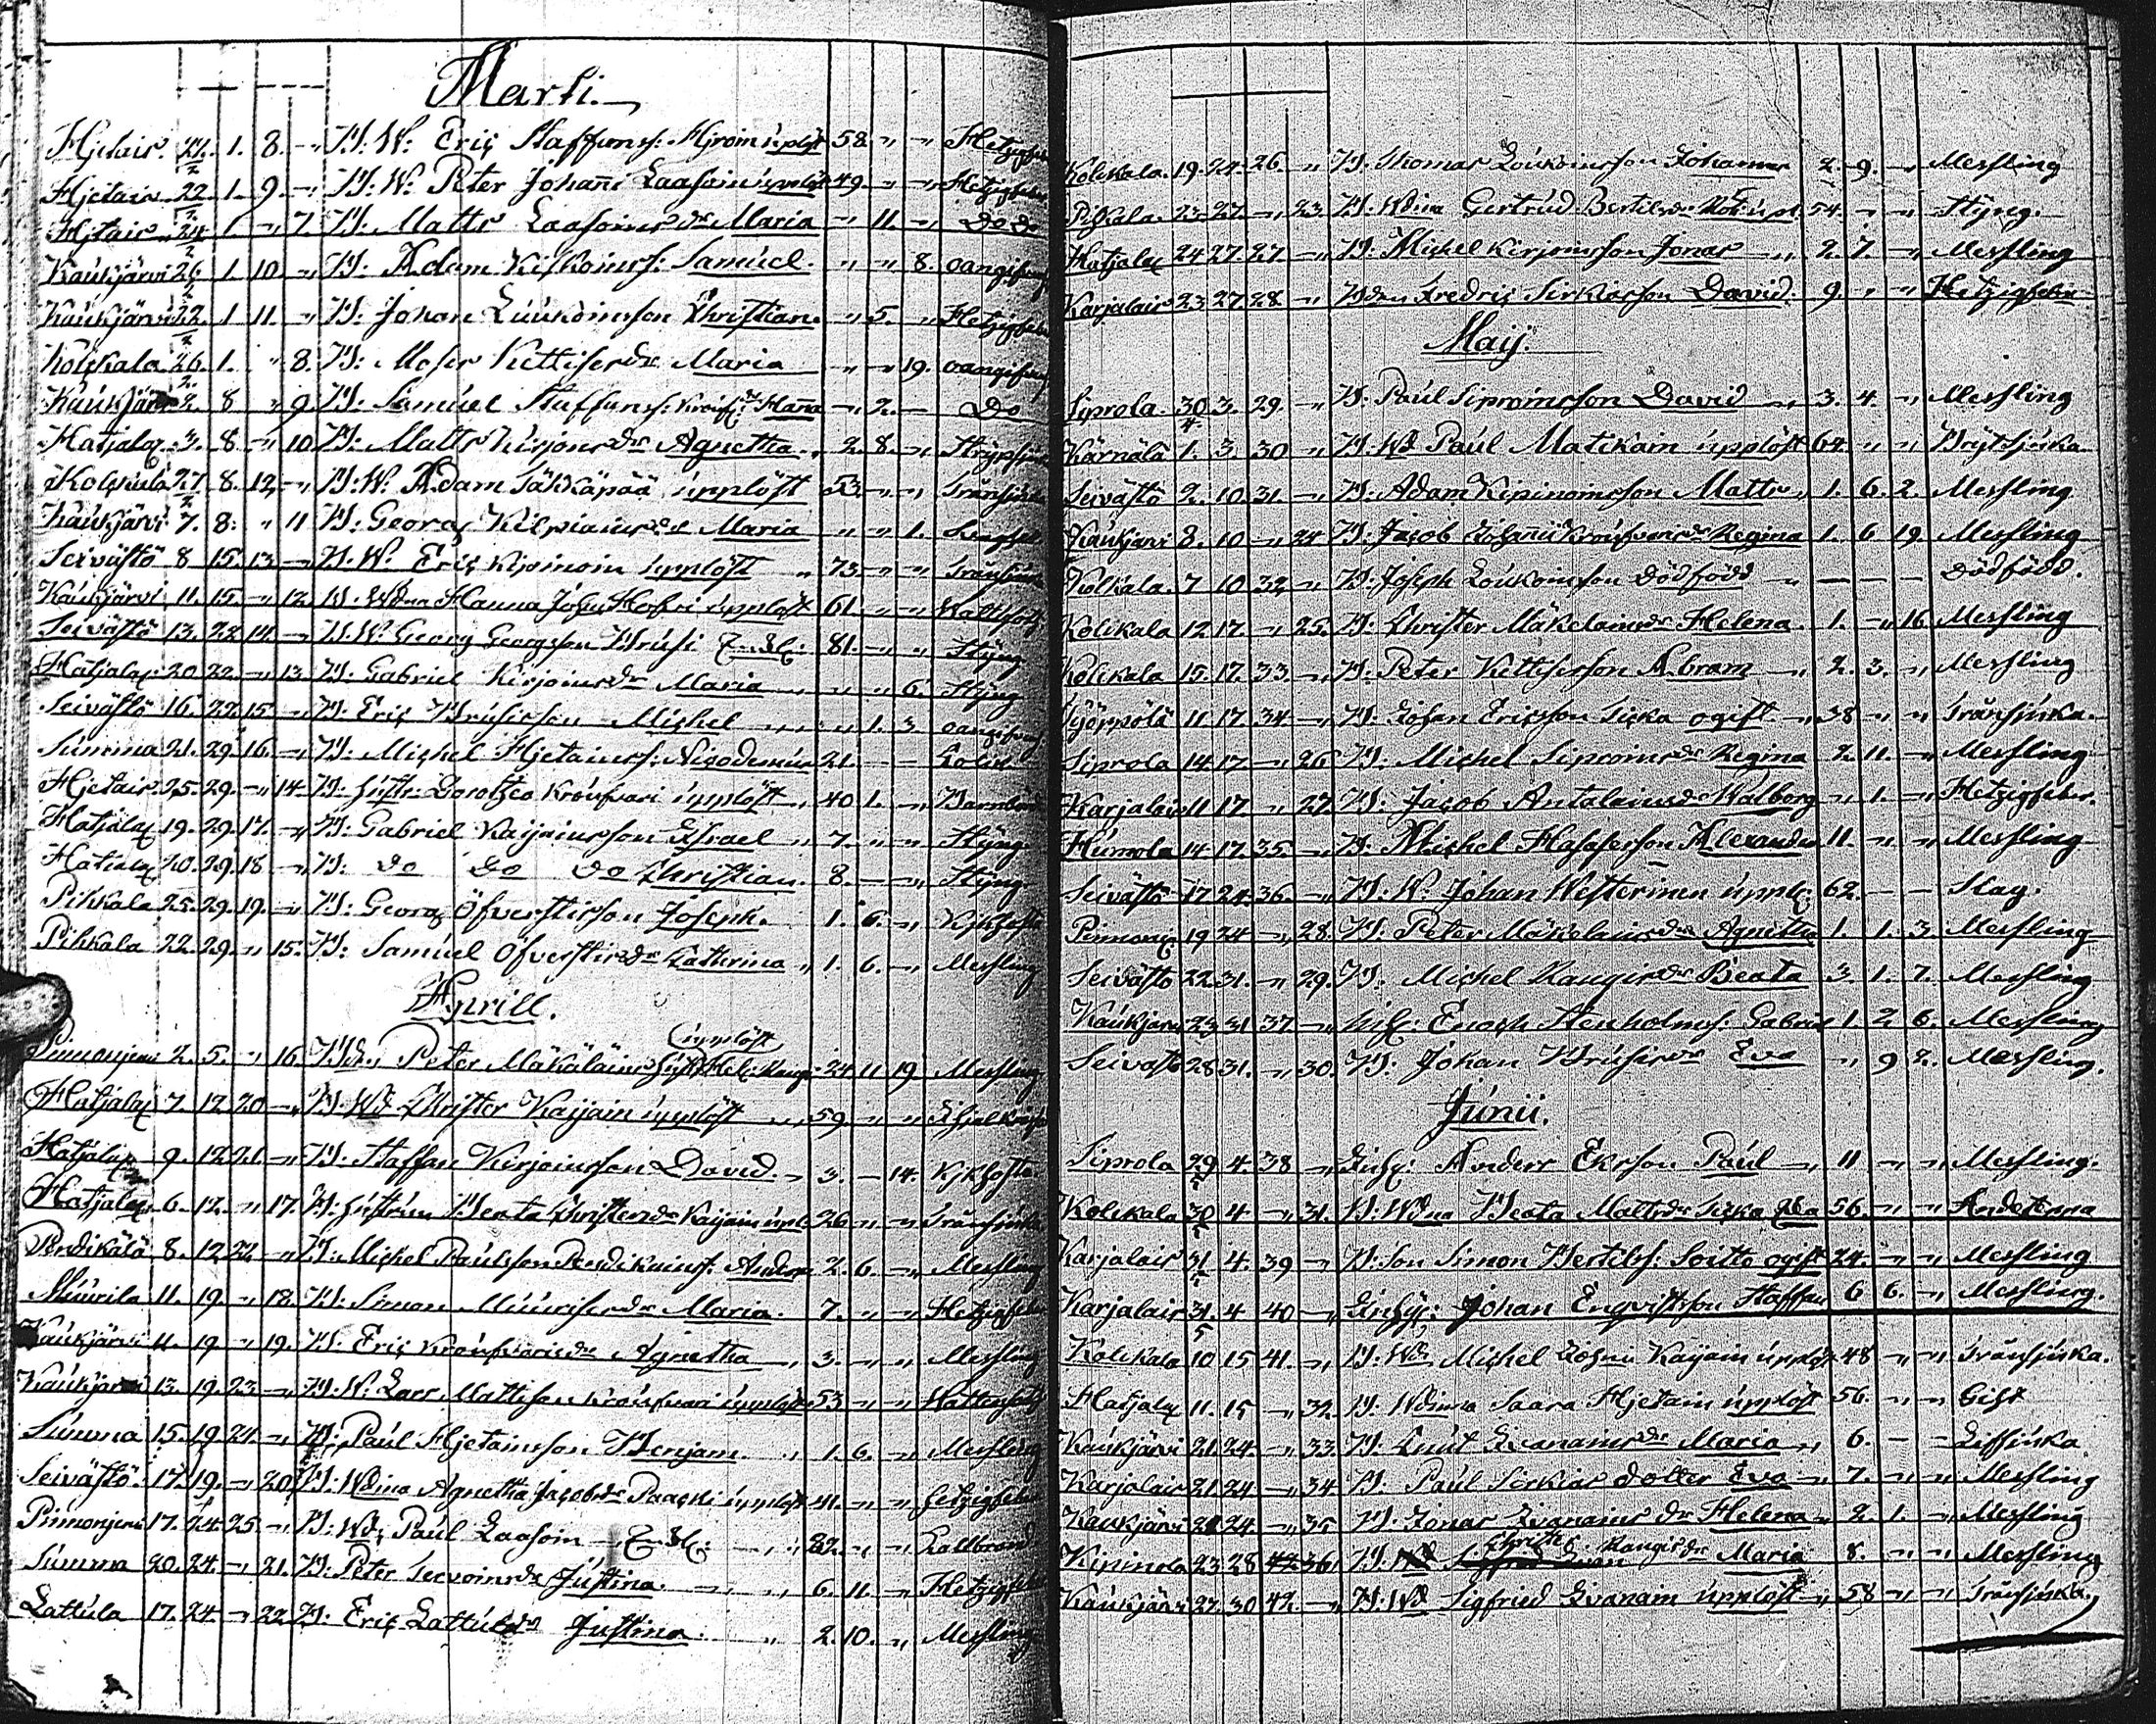 Marti.
Hjetais. 22/2. 1. 8. " B: W: Eriç Staffans: Hjroin upplöst 58. " " Hetzigfeber
Hjetais 22/2 1. 9. " B: W: Peter Johanni Laasoin upplöst 49. " " Hetzigfeber
Hjetais 24/2 1 " 7 B: Matts Laasoins dr Maria " 11. " Do Do
Kaukjärvi 26/2 1. 10. " B: Adam Kiskoins: Samúel. " " 8. oangifven
Kaukjärvi 22/2 1 11. " B: Johan Luukoinsson Christian. " 5. " Hetzigfeber
Kolckala 26/2. 1. " 8. B: Moses Kettiser dr Maria " " 19. oangifven
Kaukjärvi 2. 8 " 9 B: Samúel Staffans: Hanna " 2. " Do
Hatjalax 3. 8 " 10 B: Matts Kirjons dr Agnetha " 2. 8. "
Kolckala 27/2 8. 12. " B: W: Adam Säkkäpää upplöst 53. " " Trånsjúka
Kaukjärvi 7. 8. " 11 B: Georg Kilpiains dr Maria " " 1.
Seivästö 8 15 13 " B: W: Eriç Kipinoin upplöst " 73. " " Trånsjúka
Kaukjärvi 11. 15. " 12 B: Wdna Hanna upplöst 61. " "
Seivästö 13. 22. 14. " B: W: Georg Georgsson Brúsi Enkl: 81. " " Styng
Hatjalax 20. 22. " 13 B: Gabriel Kirjoins dr Maria " " " 6. Styng
Seivästö 16. 22. 15 " B: Eriç Brúsisson Michel " " 1. 3. oangifven
Summa 21. 29. 16. " B: Michel Hjetains: Nicodemús 21. " " Kolik
Hjetais 25. 29. " 14 B: hústr: Dorothea Kroúsvari upplöst " 40 1. " Barnbörd
Hatjalax 19. 29. 17. " B: Gabriel Kaijainsson Israel " 7. " " Styng
Hatialax 20. 29. 18 " B: do do do Christian. 8. " " Styng.
Pihkala 25. 29. 19. " B: Georg Öfverstisson Joseph. 1. 6. " Kikhosta
Pihkala 22. 29. " 15. B: Samúel Öfverstis dr Cathrina " 1. 6. " Messling
Aprill.
2. 5. " 16. Peter Mäkäläins upplöst 24 11 19 Messling
Hatjalax 7. 12 20 " B: Wd Christer Kaijain upplöst " 59. " "
Hatjalax 9. 12 21 " B: Staffan Kirjoinsson David. " 3. " 14. Kikhosta
Hatjalax 6. 12. " 17. B: hústrún Beata Christers dr Kaijain uppl: 26 " " Trånsjúka
Pendikälä 8. 12 22 " B: Michel Paúlsson Pendikains: Anders 2. 6. " Messling
Múúrila 11. 19. " 18. B: Simon Múúriser dr Maria. 7. " " Hetzigfeber
Kaukjärvi 11. 19 " 19. B: Eriç Kroúsvaris dr Agnetha " 3. " " Messling
Kaukjärvi 13. 19. 23 " B: W: Lars Mattsson Kroúsvari upplöst 53 " " Wattensot
Súmma 15. 19. 24. " B: Paúl Hjetainsson Benjam: " 1. 6. " Messling
Seivästö. 17. 19. " 20 B: Wdina Agnetha Jacobs dr Paaski upplöst 41. " " Hetzigfeber
17. 24. 25 " B: Wd: Paúl Laasoin Enkl: " 82. " " Kallbrand
Summa 20. 24. " 21. B: Peter Seevoins dr Jústina " 6. 11. " Hetzigfeber
Lattúla 17. 24. " 22 B: Eriç Lattúkas dr Jústina. " 2. 10. " Messling
Kolckala. 19. 24. 26. " B: Thomas Loúkoinsson Johannes 2. 9. " Messling
Pihkala. 23. 27. " 23. B: Wdina Gertrúd Bertels dr uppl. 54. " " Styng.
Hatjalax 24 27. 27. " B: Michel Kirjonsson Jonas " 2. 7. " Messling
Karjalais 23 27. 28. " Fredriç Sirkiasson David. 9. " " Hetzigfeber
Maij.
Siprola. 30/4 3. 29. " B. Paúl Siproinsson David " 3. 4. " Messling
Kärnälä 1. 3. 30 " B: Wd Paúl Matikain upplöst 64. " " Brÿtsjúka.
Seivästö 2. 10. 31. " B: Adam Kipinoinsson Matts " 1. 6. 2. Messling
Kaukjärvi 8. 10 " 24 B: Jacob Johanni Kroúsvaris dr Regina 1. 6. 19. Messling
Kolkala. 7 10 32. " B: Joseph Loúkoinsson Dödfödd " " " Dödfödd.
Kolckala 12 17. " 25. B: Christer Mäkelains dr Helena. 1. " 16 Messling
Kolckala 15. 17. 33. " B: Peter Kettisersson Abram " 2. 3. " Messling
Työppölä 11. 17. 34 " B: Johan Ericsson Sicka ogift " 38 " " Trånsjúka.
Siprola 14. 17 " 26 B: Michel Siproins dr Regina 2. 11. " Messling
Karjalais 11 17 " 27. B: Jacob Antalains dr Walborg " 1. " Hetzigfeber.
Húmola 14 17. 35. " B: Michel Hasasersson Alexander 11. " " Messling
Seivästö 17 24 36. " B: W: Johan Westerinen uppl: 62. " " Slag.
19. 24 " 28. B: Peter Mäkelains dr Agnetha 1. 1. 3. Messling
Seivästö 22. 31. " 29. B: Michel Kangis dr Beata 3. 1. 7. Messling
Kaukjärvi 23 31 37. " Enoch Stenholms: Gabriel 1. 2 6. Messling
Seivästö 28 31. " 30. B: Johan Brúsis dr Eva " 9 2. Messling.
Júnii.
Siprola 29/5 4. 38 " Inhÿ: Anders Ekrson Paúl " 11 " " Messling.
Kolckala 30/5 4 " 31. B: Wdna Beata Matts dr Sicka 56. " " Andetäppa
Karjalais 31/5 4. 39 " B: Son Simon Bertels: Soitto ogift 24. " " Messling
Karjalais 31/5. 4 40 " Inhÿ: Johan Enqvistsson Staffan 6 6. " Messling.
Kolckala 10 15 41. " B: Wd: Michel Kaijain upplöst 48 " " Trånsjúka.
Hatjalax 11. 15 " 32. B: Wdinna Saara Hjetain upplöst 56. " " Gikt
Kaukjärvi 21. 24. " 33. B: Knút Ivanains dr Maria " 6. " "
Karjalais 21. 24 " 34 B: Paúl Sirkias dotter Eva " 7. " " Messling
Kaukjärvi 21. 24. " 35 B. Jonas Ivanains dr Helena " 2. 1. " Messling
Kipinola 23. 28 42 36 B: Wd Sigfried Ivan Christ: Kangis dr Maria 8. " " Messling
Kaukjärvi 27. 30 42. " B: Wd Sigfried Ivanain upplöst " 58 " " Trånsjúka